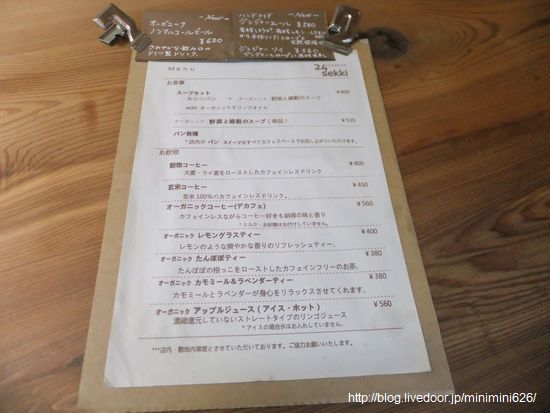 -New-
オーガニック
ノンアルコールビール
¥620
さわやかな飲み口の
ドイツ製ドリンク
-New-
ハンドメイド
ジンジャーエール ¥580
ジンジャーソイ ¥580
Menu
24
sekki
お食事
スープセット ¥800
本日のパン + オーガニック 野菜と雑穀のスープ
with オーガニックオリーブオイル
オーガニック 野菜と雑穀のスープ (単品) ¥530
パン各種
*店内の パン・スイーツはすべてカフェスペースでお召し上がりいただけます。
お飲物
穀物コーヒー ¥400
大麦・ライ麦をローストしたカフェインレスドリンク
玄米コーヒー ¥450
玄米100%のカフェインレスドリンク。
オーガニックコーヒー(デカフェ) ¥560
カフェインレスながらコーヒー好きも納得の味と香り
*ミルク・お砂糖はお付けしていません。
オーガニック レモングラスティー ¥400
レモンのような爽やかな香りのリフレッシュティー。
オーガニック たんぽぽティー ¥380
たんぽぽの根っこをローストしたカフェインフリーのお茶。
オーガニック カモミール&ラベンダーティー ¥380
カモミールとラベンダーが身心をリラックスさせてくれます。
オーガニック アップルジュース (アイス・ホット) ¥560
濃縮還元していないストレートタイプのリンゴジュース
*アイスの場合氷はお入れしていません。
***店内・敷地内禁煙とさせていただいております。ご協力お願いいたします。
http://blog.livedoor.jp/minimini626/